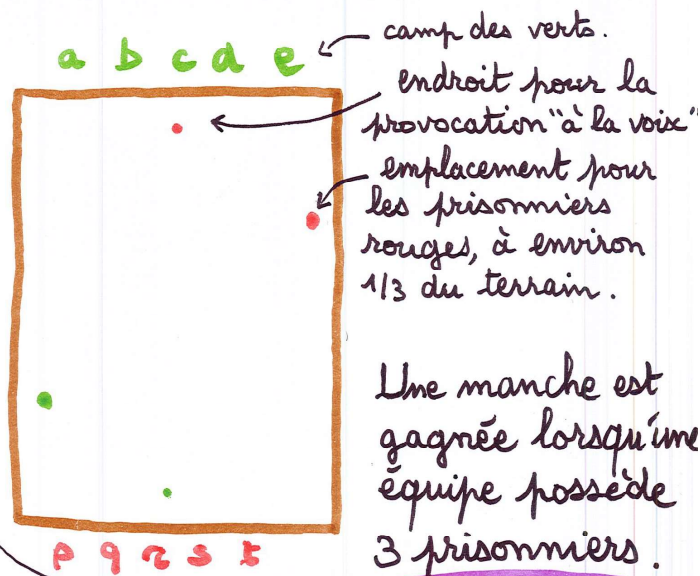 a b c d e
camp des verts.
endroit pour la
provocation "à la voix"
emplacement pour
les prisonniers
rouges, à environ
1/3 du terrain.
Une manche est
gagnée lorsqu'une
équipe possède
3 prisonniers.
p q r s t